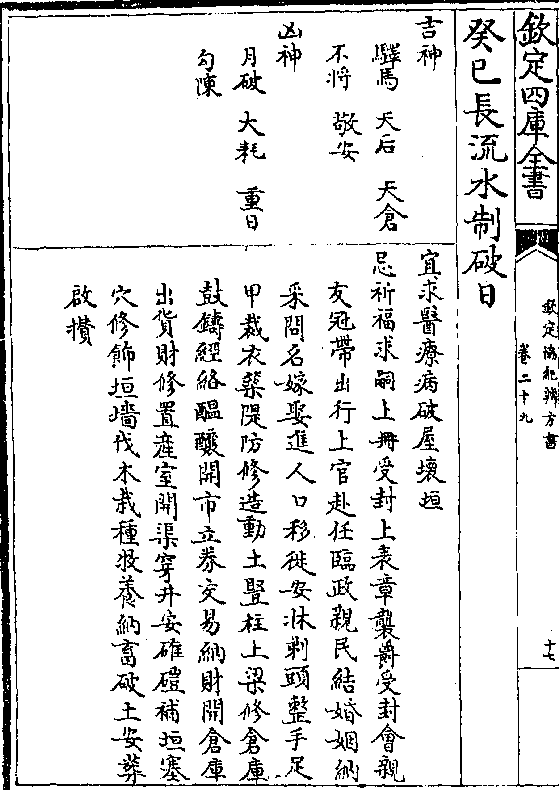 欽定四庫全書
欽定協紀辨方書
卷二十九
十七
癸巳長流水制破日
吉神
驛馬 天后 天倉
不將 敬安
凶神
月破 大耗 重日
勾陳
宜求醫療病破屋壞垣
忌祈福求嗣上冊受封上表章襲爵受封會親
友冠帶出行上官赴任臨政親民結婚姻納
采問名嫁娶進人口移徙安牀剃頭整手足
甲裁衣築隄防修造動土豎柱上梁修倉庫
鼓鑄經絡醞釀開市立券交易納財開倉庫
出貨財修置產室開渠穿井安碓磑補垣塞
穴修飾垣墻伐木栽種牧養納畜破土安葬
啟攢